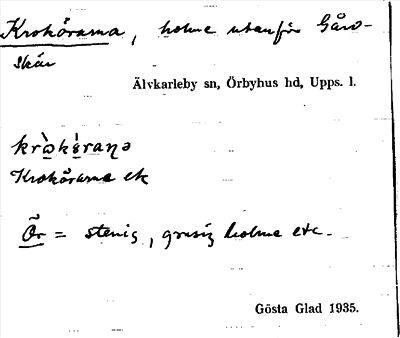 Krokörarna, holme utanför Gård-
skär
Älvkarleby sn, Örbyhus hd, Upps. l.
Krokörarna ek
Ör = stenig, grusig holme etc.
Gösta Glad 1935.